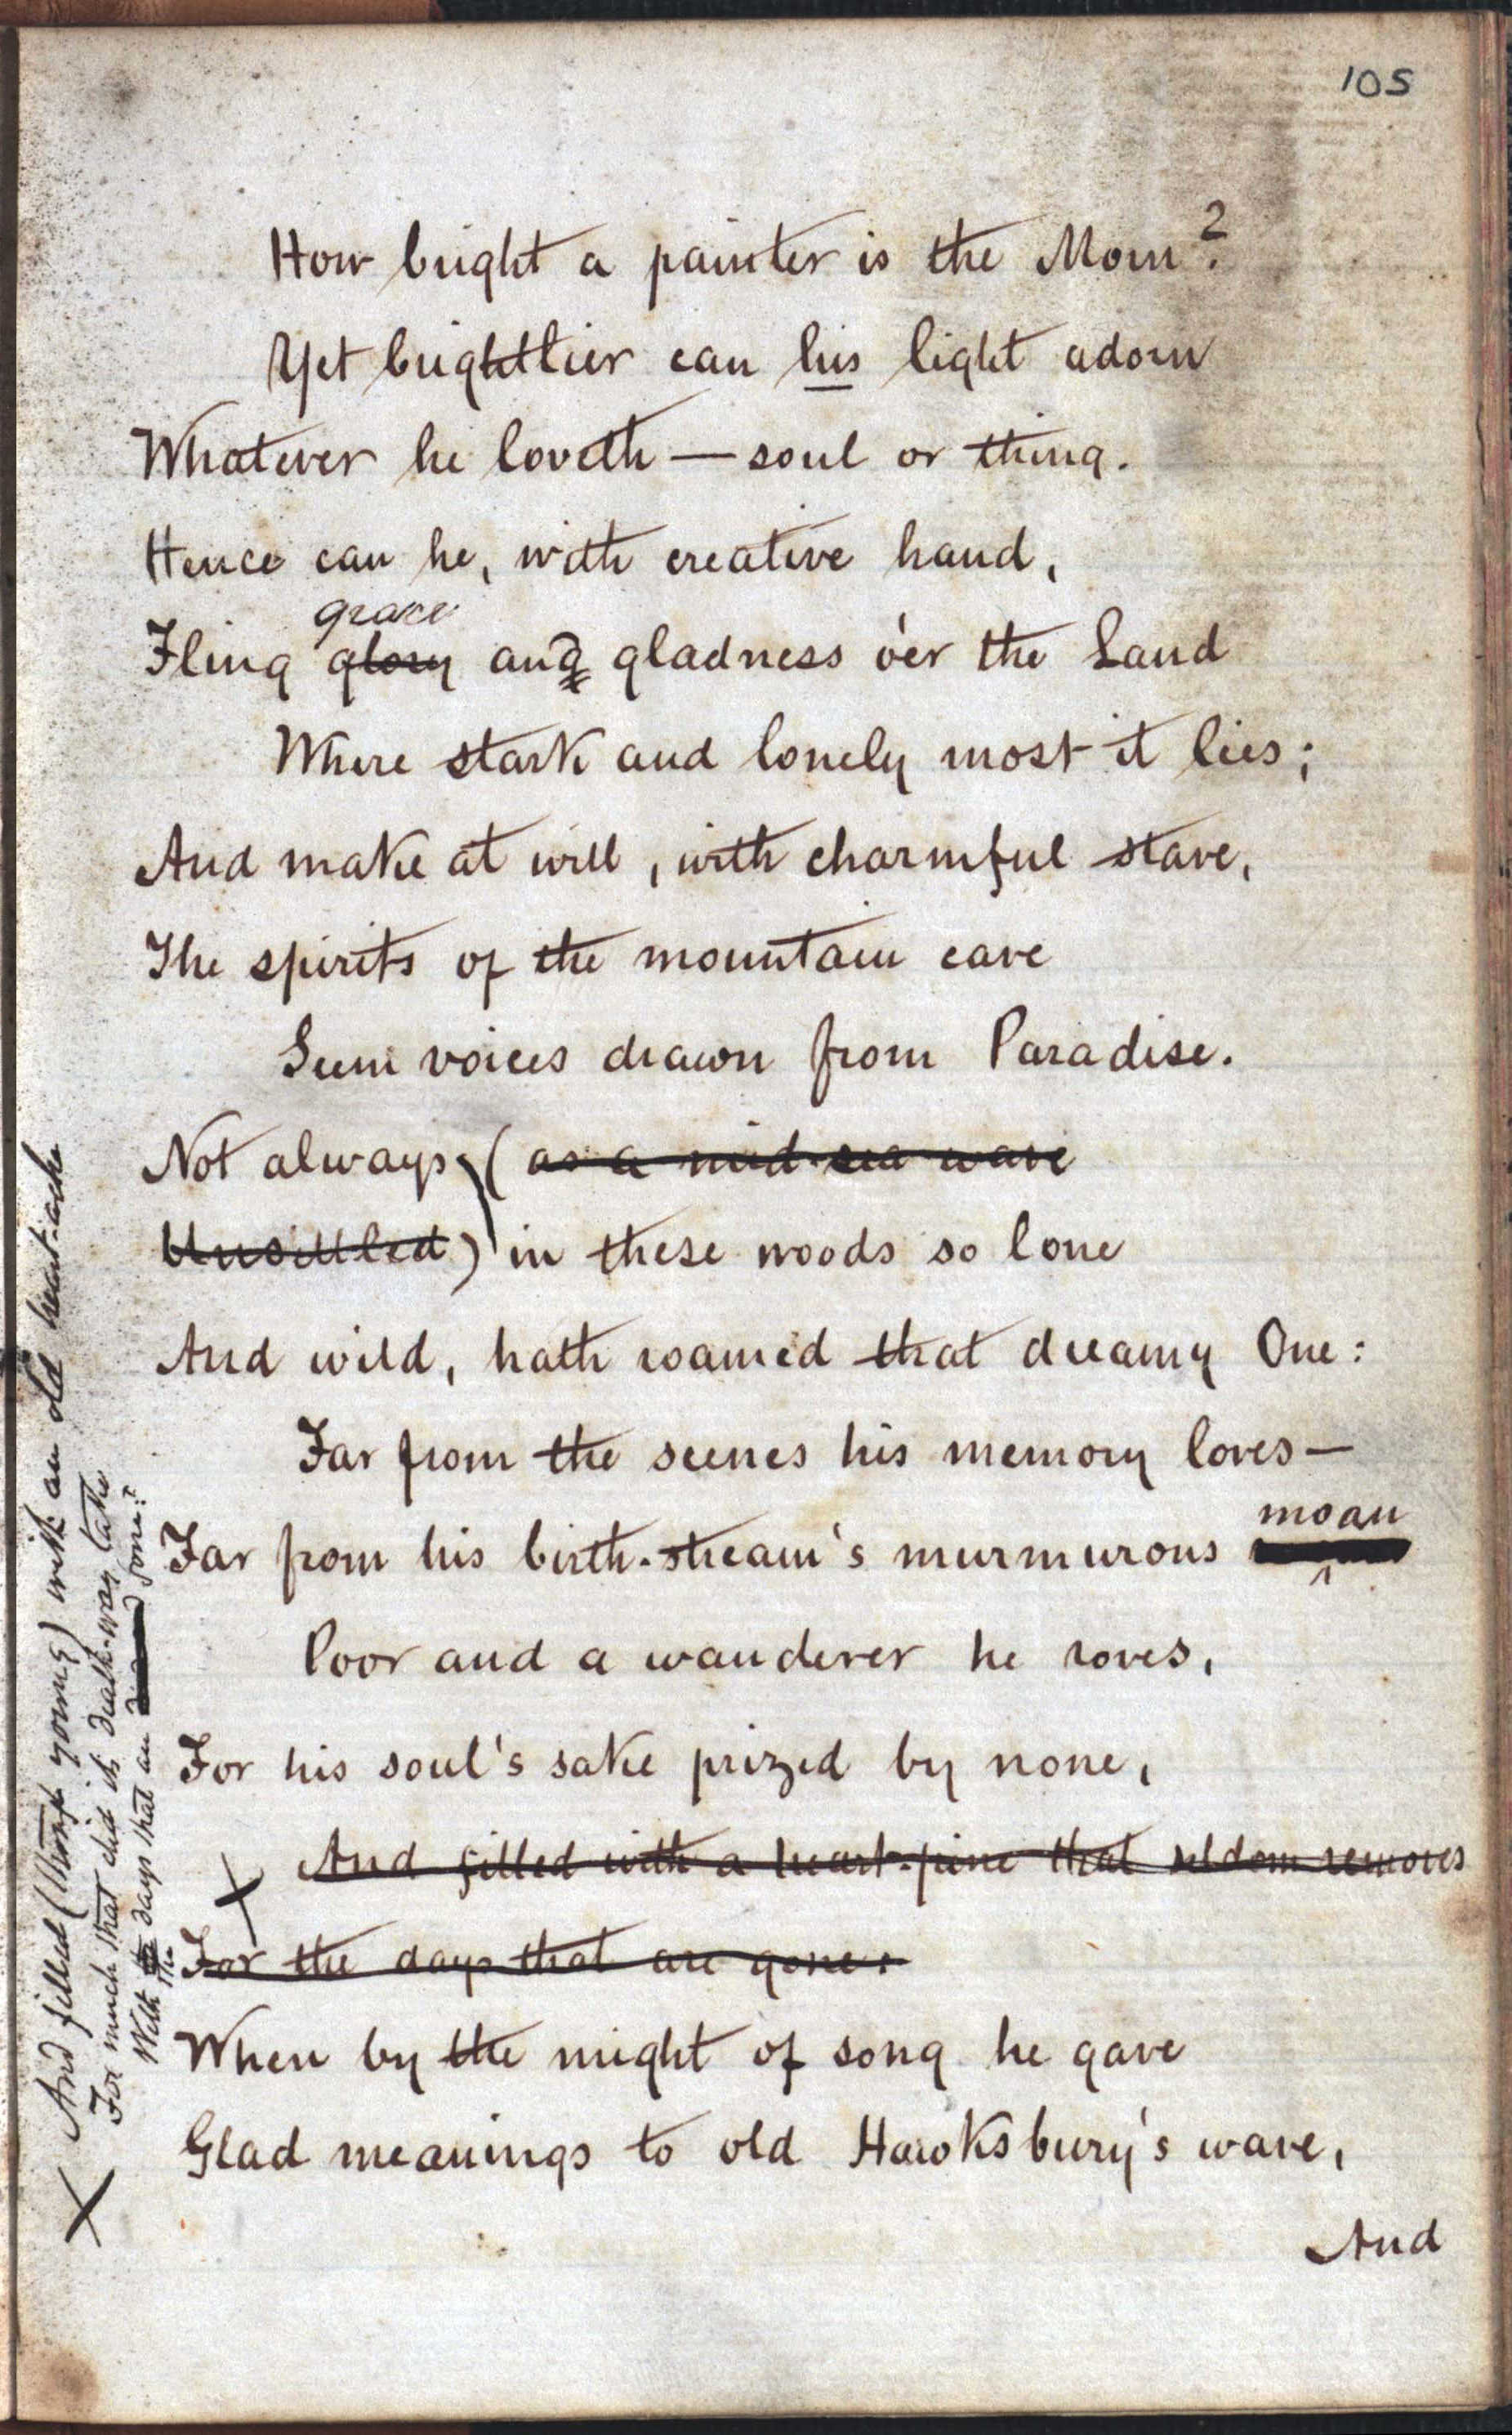 105
How bright a painter is the Morn?
Yet brightlier can his light adorn
Whatever he loveth — soul or thing.
Hence can he, with creative hand,
grace
Fling glory and gladness o'er the Land
Where stark and lonely most it lies;
And make at will, with charmful stave,
The spirits of the mountain cave
Seem voices drawn from Paradise.
Not always, (as a mid-sea wave
Unsettled) in these woods so lone
And wild, hath roamed that dreamy One:
Far from the scenes his memory loves—
moan
Far from his birth-stream's murmurous
Poor and a wanderer he roves,
For his soul's sake prized by none,
And filled with a heart-pine that seldom removes
For the days that are gone:
When by the might of song he gave
Glad meanings to old Hawksbury's wave,
And
X And filled (though young) with an old heart-ache
For much that did its death-way take
With the days that are gone: